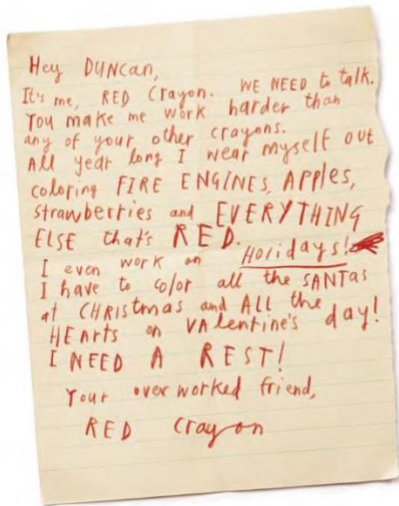 Hey DUNCan,
It's me, RED Crayon. WE NEED to talk.
You make me work harder than
any of your other crayons.
All year long I wear myself out
coloring FIRE ENGINES, Apples,
strawberries and EVERYTHING
ELSE that's RED.
I even work on Holidays!
I have to color all the SANTAs
at CHRistmas and ALL the
HEArts on VAlentine's day!
I NEED A REST!
Your overworked friend,
RED Crayon